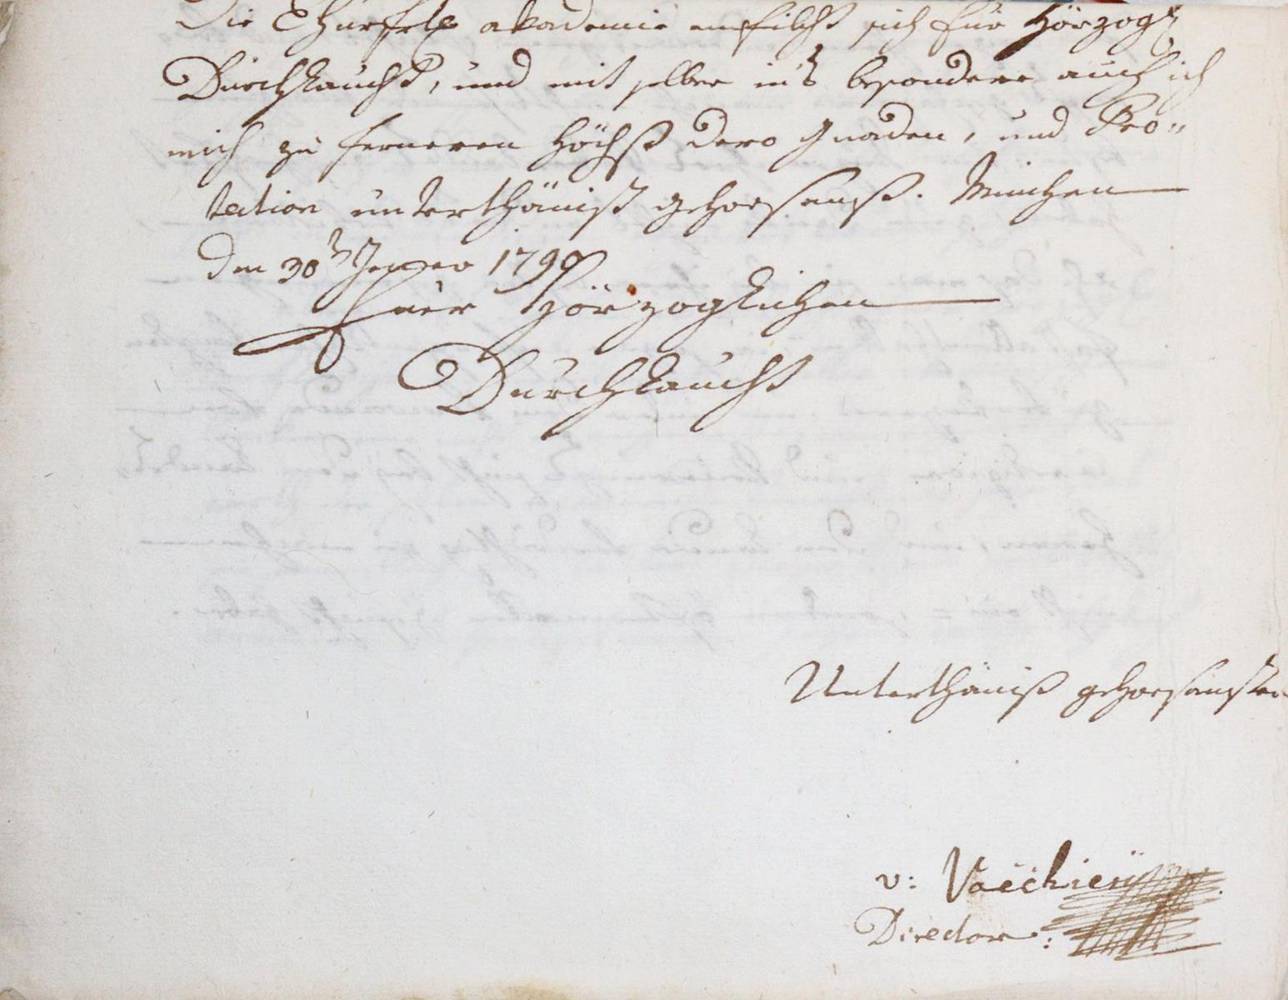 Die Churfrtl akademie empfilcht sich für Hörzogl
Durchlaucht, und mit selber in's besondere auch ich
mich zu ferneren Höchst dero Gnaden, und Pro„
tection unterthänigst gehorsamst. München
den 30 Jenner 1790
Euer Hörzoglichen
Durchlaucht
Unterthänigst gehorsamster
v:
Director: